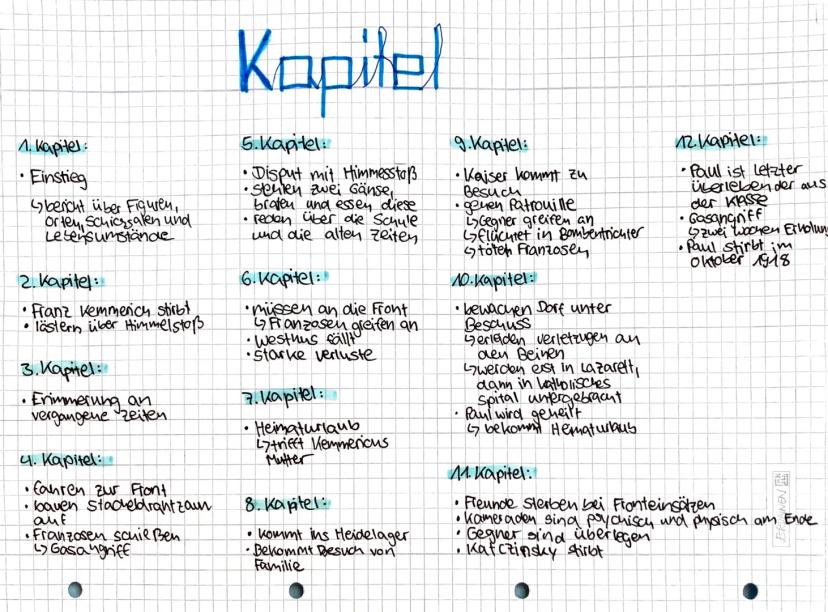 Kapitel
1. Kapitel:
• Einstieg
↳ bericht über Figuren,
Orten, Schicksalen und
Lebensumstände
2. Kapitel:
• Franz Kemmerich stirbt
• lästern über Himmelstoß
3. Kapitel:
• Erinnerung an
vergangene Zeiten
4. Kapitel:
• fahren zur Front
• bauen Stacheldrahtzaun
auf
• Franzosen schießen
↳ Gasangriff
5. Kapitel:
• Disput mit Himmesstoß
• stehlen zwei Gänse,
braten und essen diese
• reden über die Schule
und die alten Zeiten
6. Kapitel:
• müssen an die Front
↳ Franzosen greifen an
• Westhus fällt
• starke verluste
7. Kapitel:
• Heimaturlaub
↳ trifft Kemmerichs
Mutter
8. Kapitel:
• kommt ins Heidelager
• Bekommt Besuch von
Familie
9. Kapitel:
• Kaiser kommt zu
Besuch
• gehen Patrouille
↳ Gegner greifen an
↳ flüchtet in Bombentrichter
↳ töten Franzosen
10. Kapitel:
• bewachen Dorf unter
Beschuss
↳ erleiden verletzugen an
den Beinen
↳ werden erst in Lazarett,
dann in katholisches
spital untergebracht
• Paul wird geheilt
↳ bekommt Heimaturlaub
11. Kapitel:
• Freunde sterben bei Fronteinsätzen
• Kameraden sind psychisch und physisch am Ende
• Gegner sind überlegen
• Katczinsky stirbt
12. Kapitel:
• Paul ist letzter
überlebender aus
der Klasse
• Gasangriff
↳ zwei wochen Erholung
• Paul stirbt im
Oktober 1918
BRUNNEN